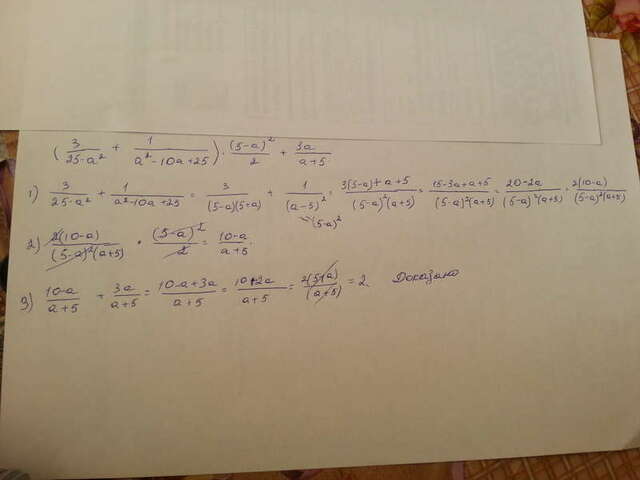 (3/(25-a²) + 1/(a²-10a+25)) · (5-a)²/2 + 3a/(a+5)
1) 3/(25-a²) + 1/(a²-10a+25) = 3/((5-a)(5+a)) + 1/(a-5)² = (3(5-a)+a+5)/((5-a)²(a+5)) = (15-3a+a+5)/((5-a)²(a+5)) = (20-2a)/((5-a)²(a+5)) = 2(10-a)/((5-a)²(a+5))
(5-a)²
2) 2(10-a)/((5-a)²(a+5)) · (5-a)²/2 = (10-a)/(a+5).
3) (10-a)/(a+5) + 3a/(a+5) = (10-a+3a)/(a+5) = (10+2a)/(a+5) = 2(5+a)/(a+5) = 2. Доказано